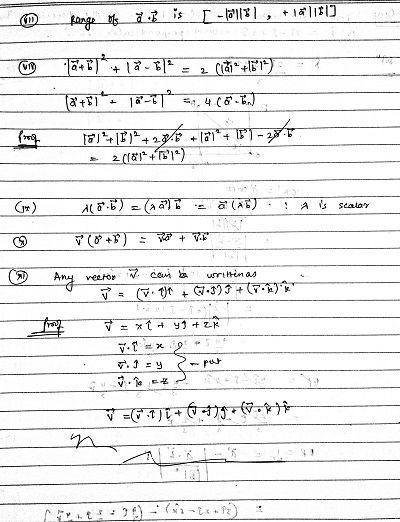 (vii) Range of a⃗·b⃗ is [-|a⃗||b⃗|, +|a⃗||b⃗|]
(viii) |a⃗+b⃗|² + |a⃗-b⃗|² = 2(|a⃗|²+|b⃗|²)
|a⃗+b⃗|² - |a⃗-b⃗|² = 4(a⃗·b⃗)
Proof |a⃗|²+|b⃗|²+2a⃗·b⃗ + |a⃗|² + |b⃗| - 2a⃗·b⃗
= 2(|a⃗|²+|b⃗|²)
(ix) λ(a⃗·b⃗) = (λa⃗)b⃗ = a⃗(λb⃗) ∴ λ is scalar
(x) v⃗(a⃗+b⃗) = v⃗a⃗ + v⃗·b⃗
(xi) Any vector v⃗ can be written as
v⃗ = (v⃗·î)î + (v⃗·ĵ)ĵ + (v⃗·k̂)k̂
Proof v⃗ = xî + yĵ + zk̂
v⃗·î = x
v⃗·ĵ = y } - put
v⃗·k̂ = z
v⃗ = (v⃗·î)î + (v⃗·ĵ)ĵ + (v⃗·k̂)k̂